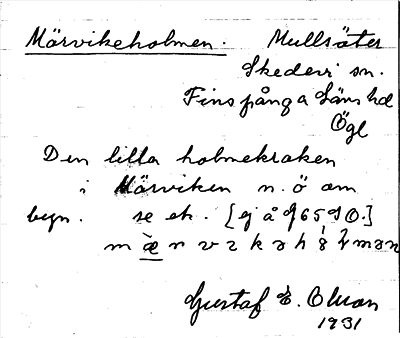 Mörvikeholmen. Mullsäter
Skedevi sn.
Finspånga Läns hd
Ögl
Den lilla holmekraken
i Mörviken n. ö om
byn. se ek. [ej å
Gustaf E. Olson
1931